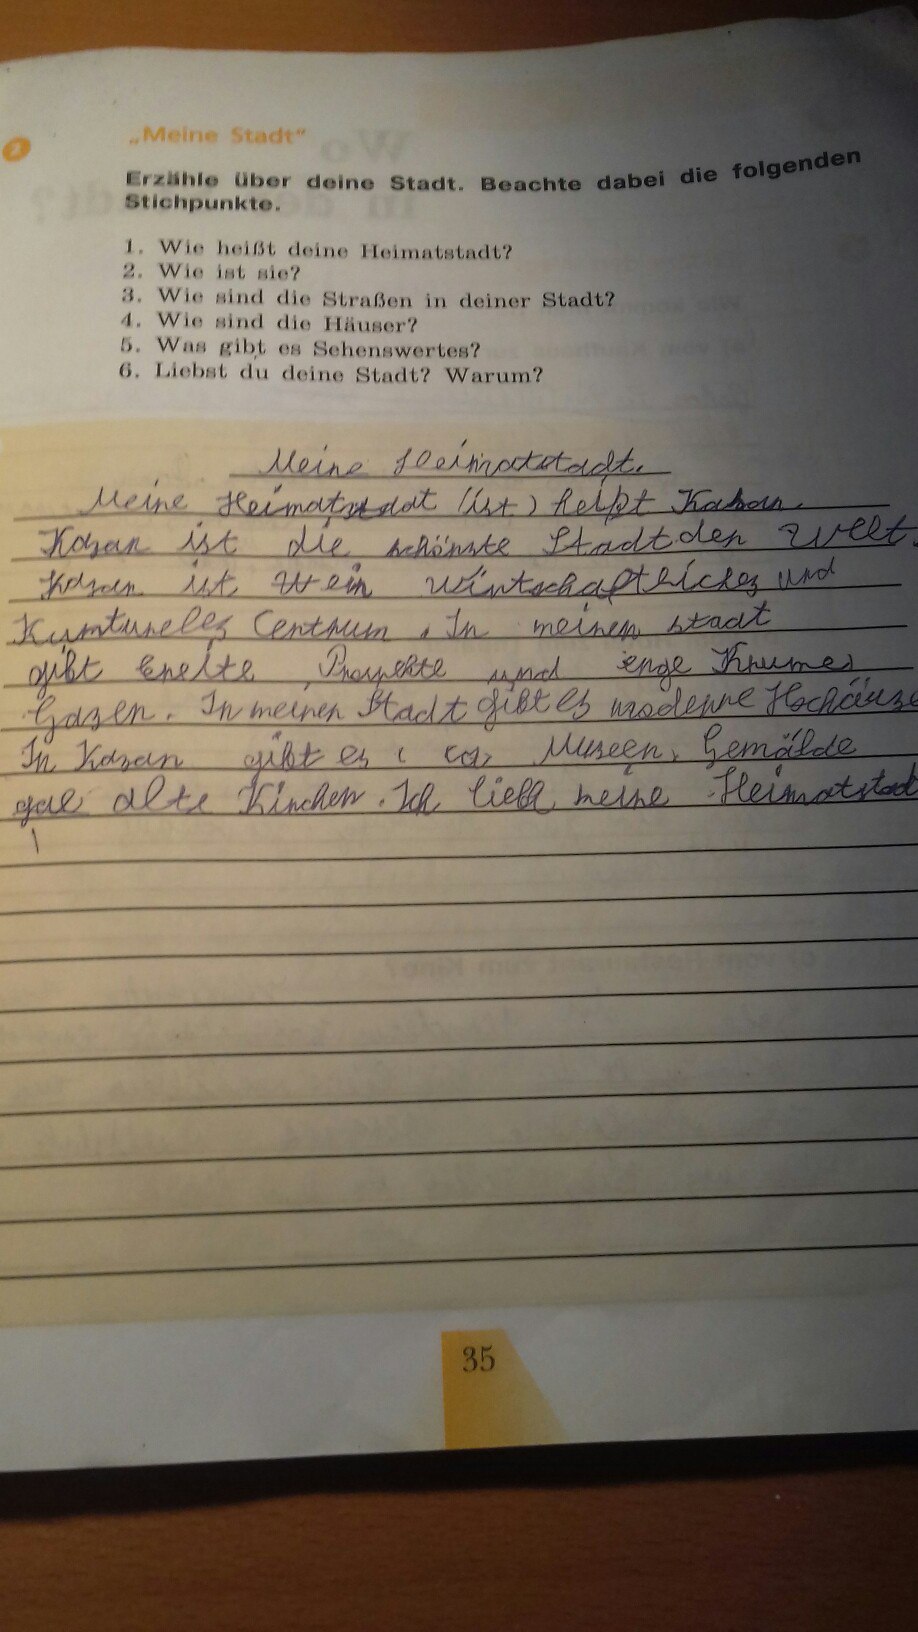 2
„Meine Stadt“
Erzähle über deine Stadt. Beachte dabei die folgenden
Stichpunkte.
1. Wie heißt deine Heimatstadt?
2. Wie ist sie?
3. Wie sind die Straßen in deiner Stadt?
4. Wie sind die Häuser?
5. Was gibt es Sehenswertes?
6. Liebst du deine Stadt? Warum?
Meine Heimatstadt.
Meine Heimatstadt (ist) heißt Kasan.
Kasan ist die schönste Stadt der Welt.
Kasan ist ein wirtschaftliches und
Centrum. In meiner stadt
gibt breite Prospekte und enge
Gazen. In meiner Stadt gibt es moderne
In Kasan gibt es Museen, Gemälde
gal alte Kirchen. Ich liebe meine Heimatstad
35